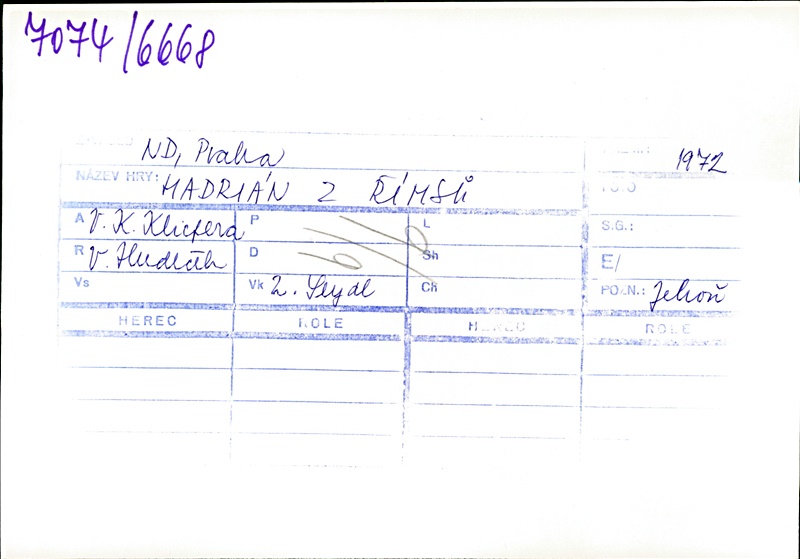 7074/6668
ND, Praha 1972
NÁZEV HRY: HADRIÁN Z ŘÍMSŮ FOTO
A V. K. Klicpera P L S.G.:
R V. Hudeček D Sh E/
Vs Vk Z. Seydl Ch POZN.: Jehoň
HEREC ROLE HEREC ROLE